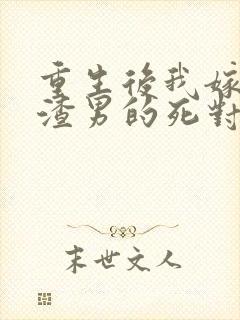 重生後我嫁
渣男的死對
末世文人